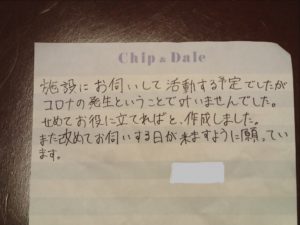 Chip & Dale
施設にお伺いして活動する予定でしたが
コロナの発生ということで叶いませんでした。
せめてお役に立てればと、作成しました。
また改めてお伺いする日が来ますように願ってい
ます。